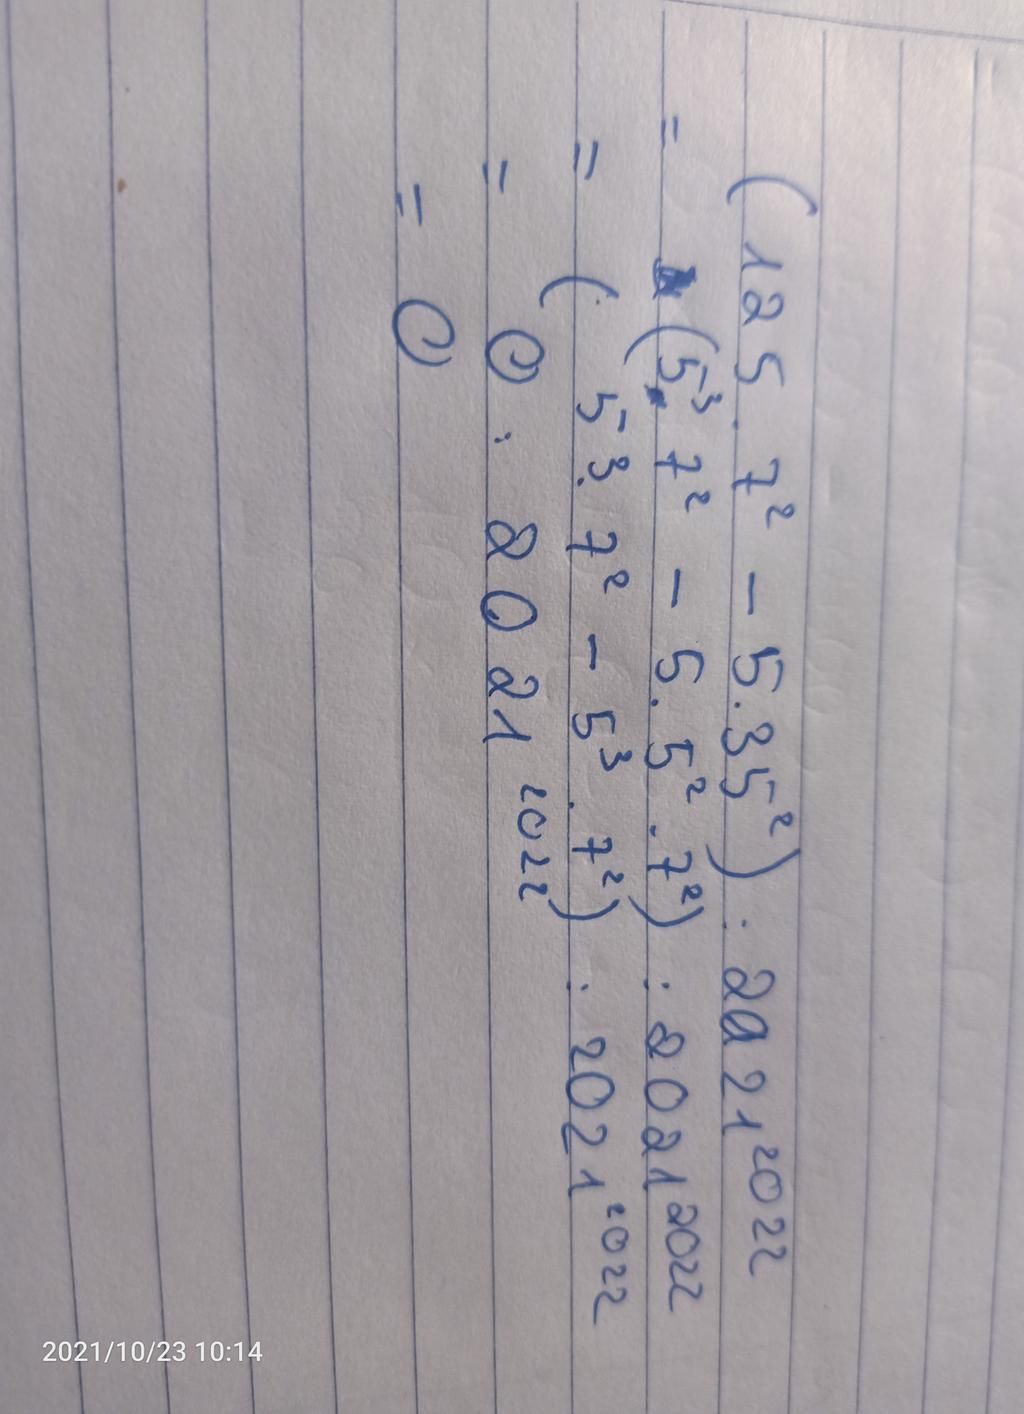 (125.7² - 5.35²) : 2021²⁰²²
= (5³.7² - 5.5².7²) : 2021²⁰²²
= (5³.7² - 5³.7²) : 2021²⁰²²
= 0 : 2021²⁰²²
= 0
2021/10/23 10:14